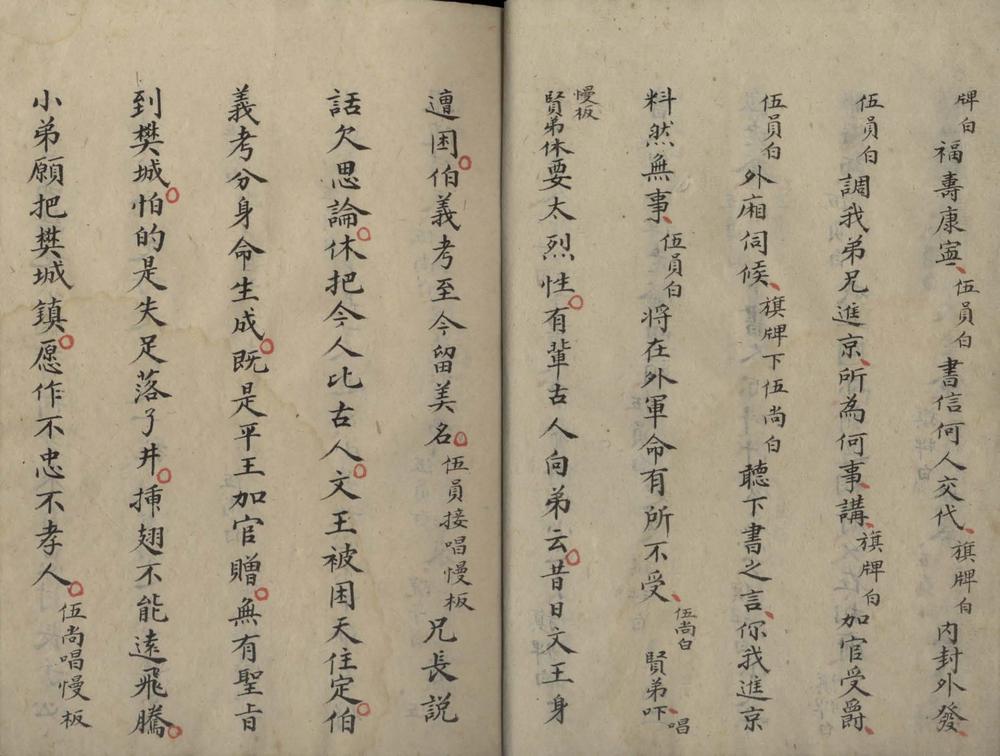 牌白福壽康寧、伍員白書信何人交代、旗牌白内封外發、
伍員白調我弟兄進京、所為何事、講、旗牌白加官受爵、
伍員白外廂伺候、旗牌下伍尚白聽下書之言、你我進京
料然無事、伍員白將在外軍命有所不受、伍尚白賢弟吓、唱
慢板賢弟休要太烈性。有輩古人向弟云。昔日文王身
遭困。伯義考至今留美名。伍員接唱慢板兄長説
話欠思論。休把今人比古人。文王被困天住定。伯
義考分身命生成。既是平王加官贈。無有聖旨
到樊城。怕的是失足落了井。揷翅不能遠飛騰。
小弟願把樊城鎮。愿作不忠不孝人。伍尚唱慢板